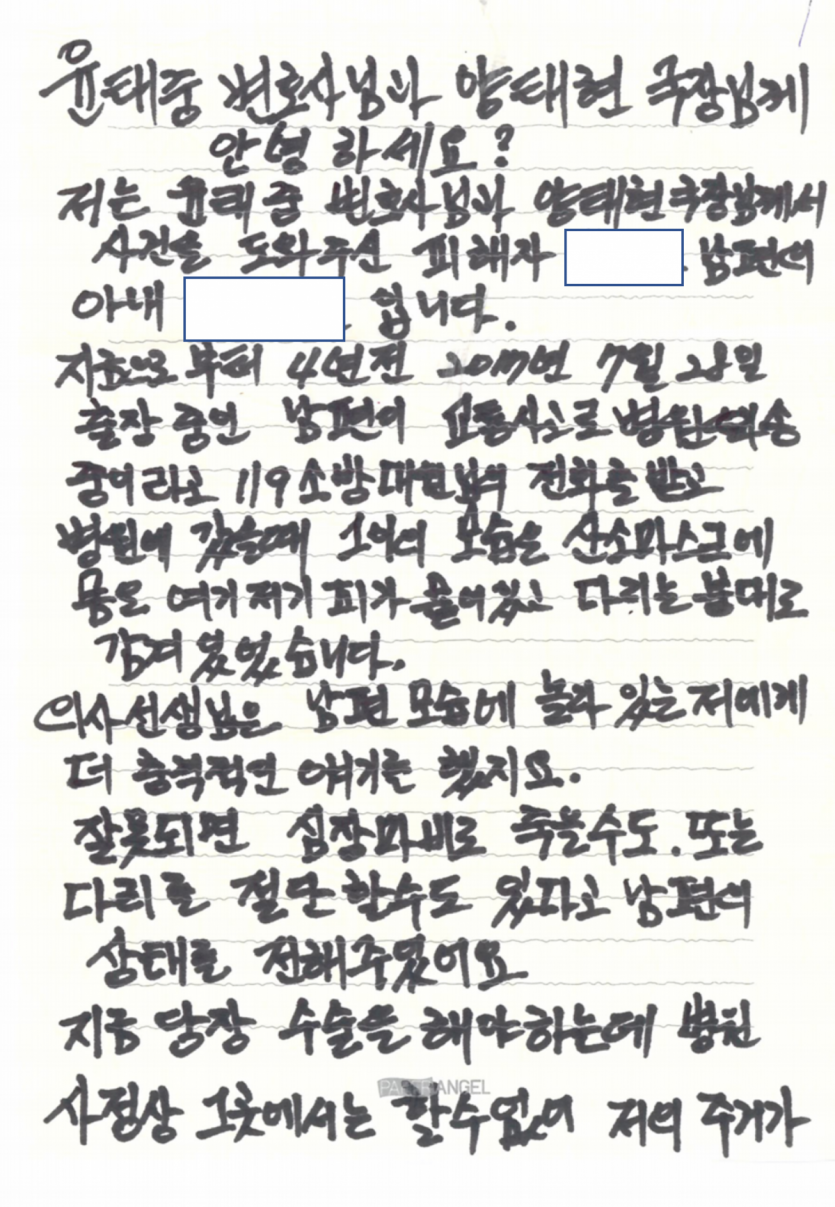 윤태중 변호사님과 양태현 국장님께
안녕 하세요?
저는 윤태중 변호사님과 양태현국장님께서
사건을 도와주신 피해자 남편의
아내 입니다.
지금으로 부터 4년전 2017년 7월 28일
출장 중인 남편이 교통사고로 병원에 이송
중이라고 119소방대원님의 전화를 받고
병원에 갔을때 그이의 모습은 산소마스크에
몸은 여기저기 피가 흘러있고 다리는 붕대로
감겨 있었습니다.
의사선생님은 남편 모습에 놀라 있는 저에게
더 충격적인 얘기를 했지요.
잘못되면 심장마비로 죽을수도. 또는
다리를 절단 할수도 있다고 남편의
상태를 전해주었어요
지금 당장 수술을 해야하는데 병원
PAPER ANGEL
사정상 그곳에서는 할수없어 저의 주거가